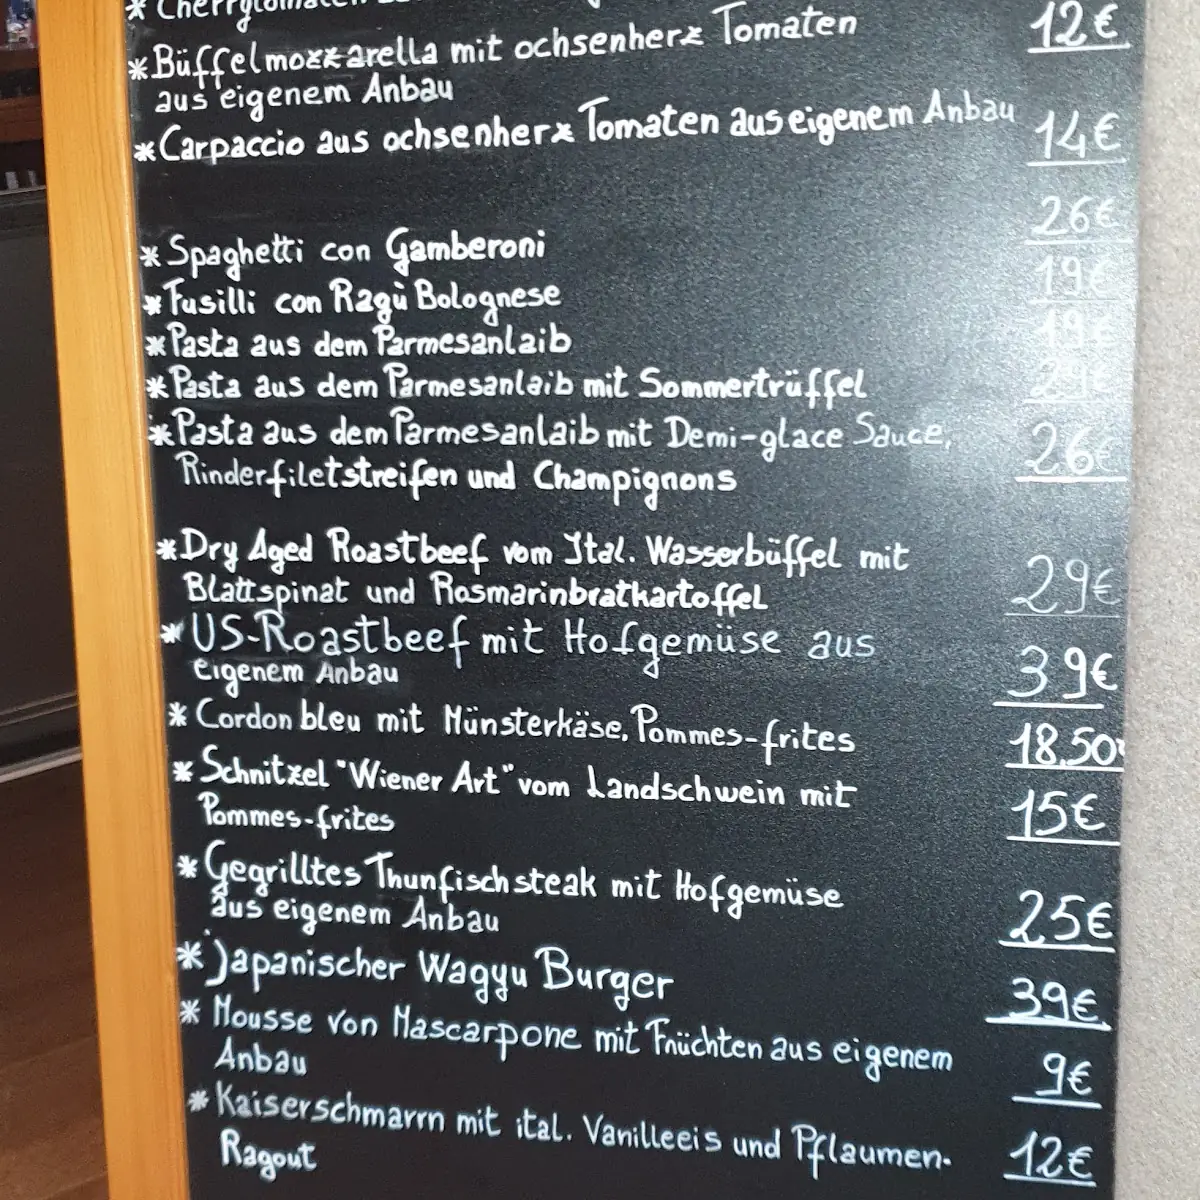 * Cherrytomaten
* Büffelmozzarella mit ochsenherz Tomaten 12€
aus eigenem Anbau
* Carpaccio aus ochsenherz Tomaten aus eigenem Anbau 14€
* Spaghetti con Gamberoni 26€
* Fusilli con Ragù Bolognese 19€
* Pasta aus dem Parmesanlaib 19€
* Pasta aus dem Parmesanlaib mit Sommertrüffel 29€
* Pasta aus dem Parmesanlaib mit Demi-glace Sauce, 26€
Rinderfiletstreifen und Champignons
* Dry Aged Roastbeef vom Ital. Wasserbüffel mit 29€
Blattspinat und Rosmarinbratkartoffel
* US-Roastbeef mit Hofgemüse aus 39€
eigenem Anbau
* Cordon bleu mit Münsterkäse, Pommes-frites 18.50
* Schnitzel "Wiener Art" vom Landschwein mit 15€
Pommes-frites
* Gegrilltes Thunfischsteak mit Hofgemüse 25€
aus eigenem Anbau
* Japanischer Wagyu Burger 39€
* Mousse von Mascarpone mit Früchten aus eigenem 9€
Anbau
* Kaiserschmarrn mit ital. Vanilleeis und Pflaumen- 12€
Ragout